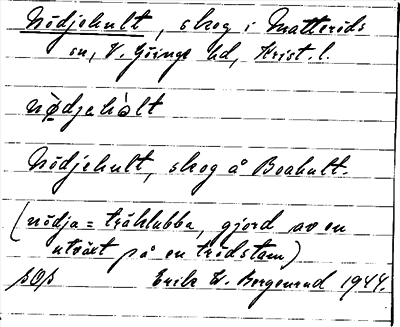 Nödjehult, skog i Matteröds
sn, V. Göinge hd, Krist. l.
nø̀djahòlt
Nödjehult, skog å Boahult.
(nödja = träklubba, gjord av en
utväxt på en trädstam)
Erik W. Bergenrud 1944.